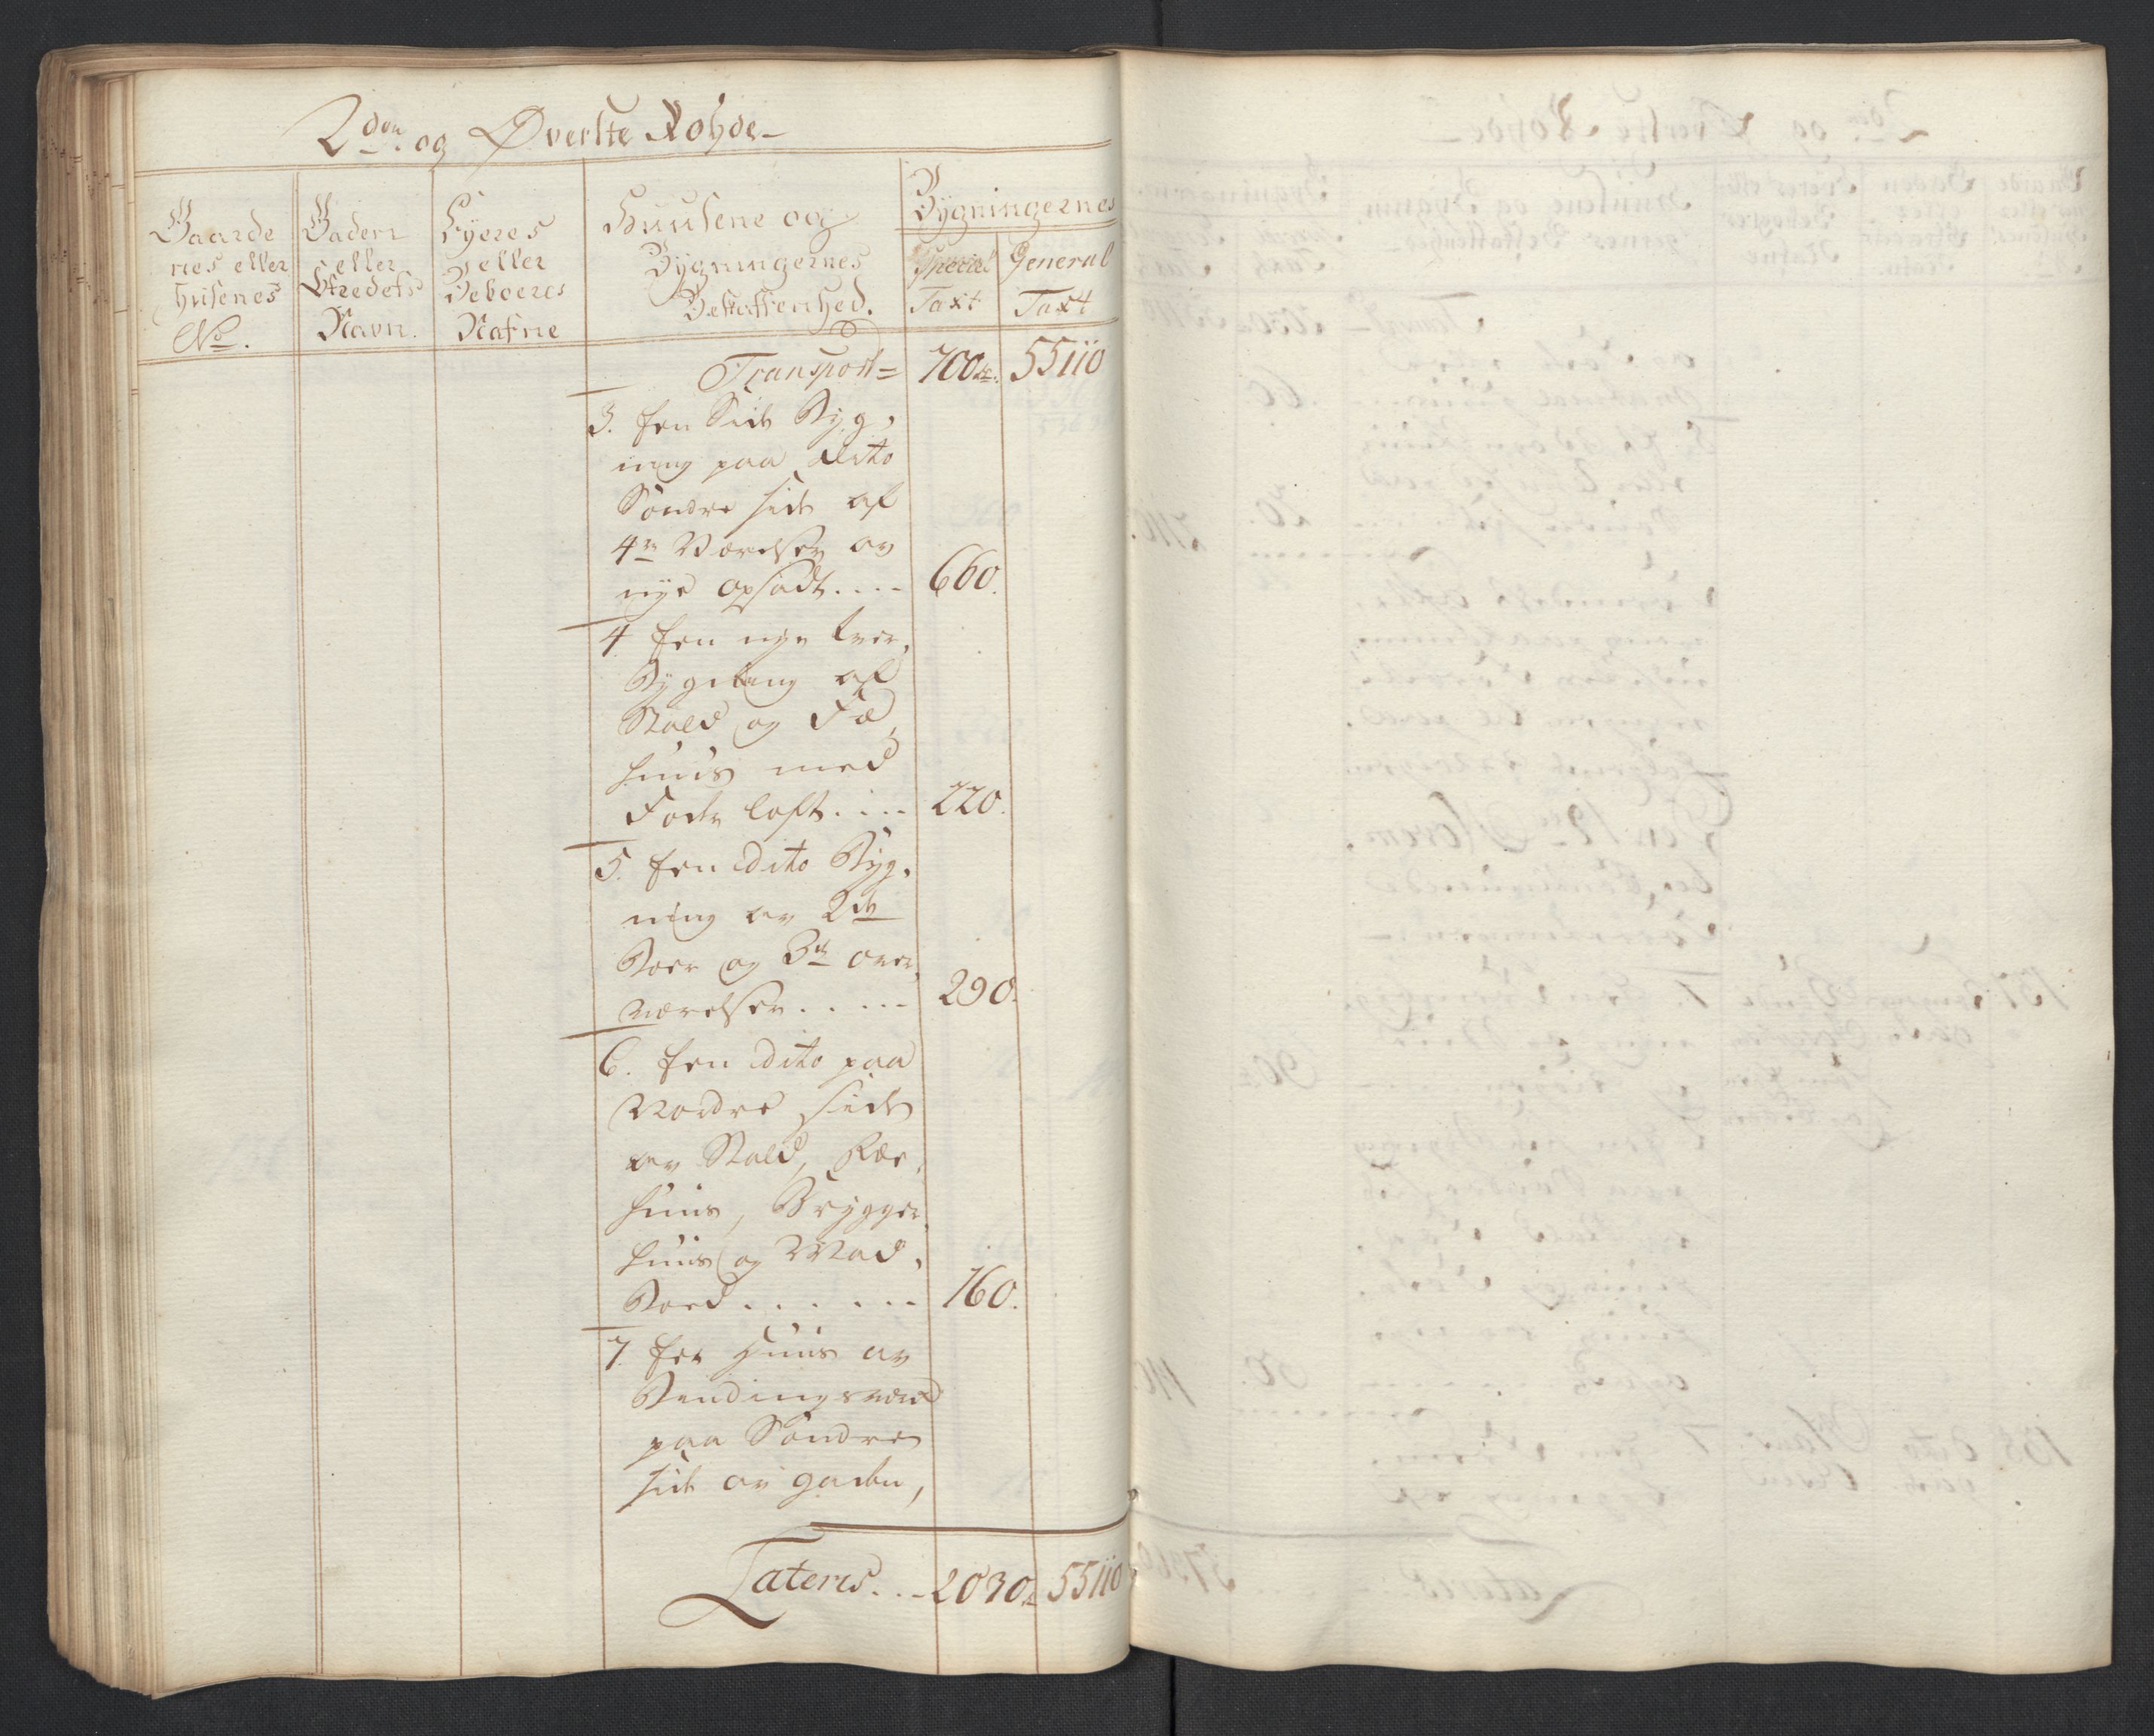 2den og Øverste Rohde
Gaarde
nes eller
Husenes
No.
Gaden
eller
Strædets
Navn.
Eyeres
eller
Beboeres
Nafne
Huusene og
Bygningernes
Beskaffenhed.
Bygningernes
Special
Taxt
General
Taxt
Transport = 700 55110
3. Een Side Byg,
ning paa dito
Søndre side af
4re Værelser og
nye opsadt.... 660.
4 Een nye tver,
Bygning af
Stald og Fæ,
huus med
Foder loft.... 220.
5. Een dito Byg,
ning av 2de
Boer og 3de over,
værelser..... 290.
6. Een dito paa
Nordre side
av Stald, Fæe,
huus, Brygger,
huus og Mad,
Boed...... 160.
7. Eet Huus av
Bendingsværk
paa Søndre
side av gaden,
Lateris... 2030 55110